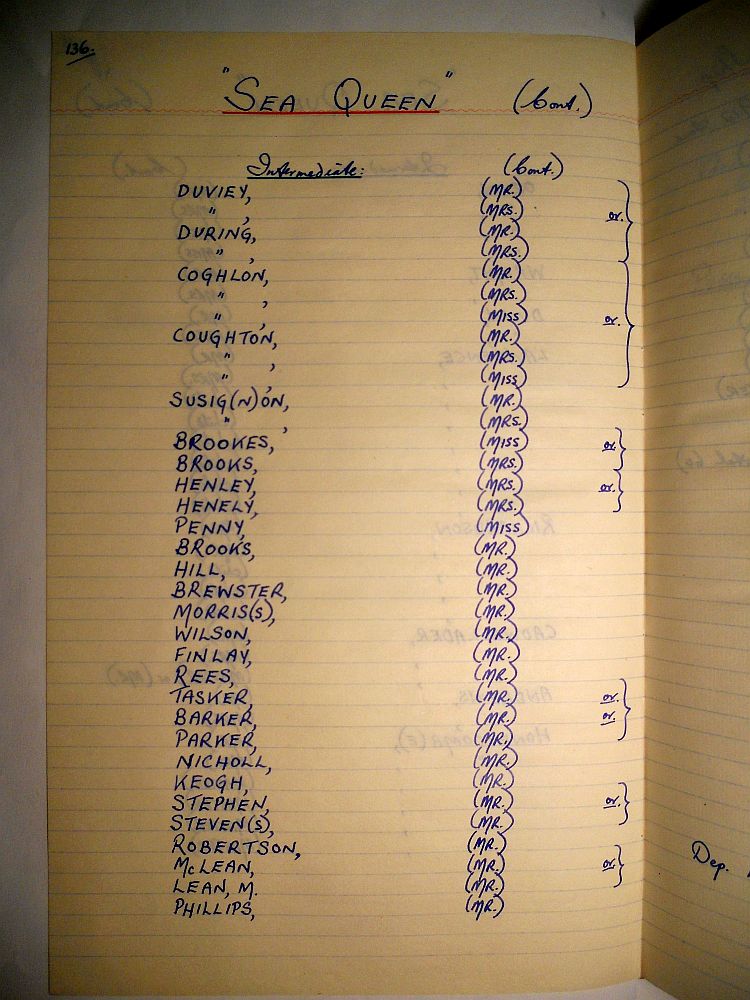 136.
"SEA QUEEN" (Cont.)
Intermediate: (Cont.)
DUVIEY, (MR.)
" , (MRS.) or.
DURING, (MR.)
" , (MRS.)
COGHLON, (MR.)
" , (MRS.)
" , (MISS) or.
COUGHTON, (MR.)
" , (MRS.)
" , (MISS)
SUSIG(N)ON, (MR.)
" , (MRS.)
BROOKES, (MISS) or.
BROOKS, (MRS.)
HENLEY, (MRS.) or.
HENELY, (MRS.)
PENNY, (MISS)
BROOKS, (MR.)
HILL, (MR.)
BREWSTER, (MR.)
MORRIS(S), (MR.)
WILSON, (MR.)
FINLAY, (MR.)
REES, (MR.)
TASKER, (MR.) or.
BARKER, (MR.) or.
PARKER, (MR.)
NICHOLL, (MR.)
KEOGH, (MR.)
STEPHEN, (MR.) or.
STEVEN(S), (MR.)
ROBERTSON, (MR.)
McLEAN, (MR.) or.
LEAN, M. (MR.)
PHILLIPS, (MR.)
Dep.